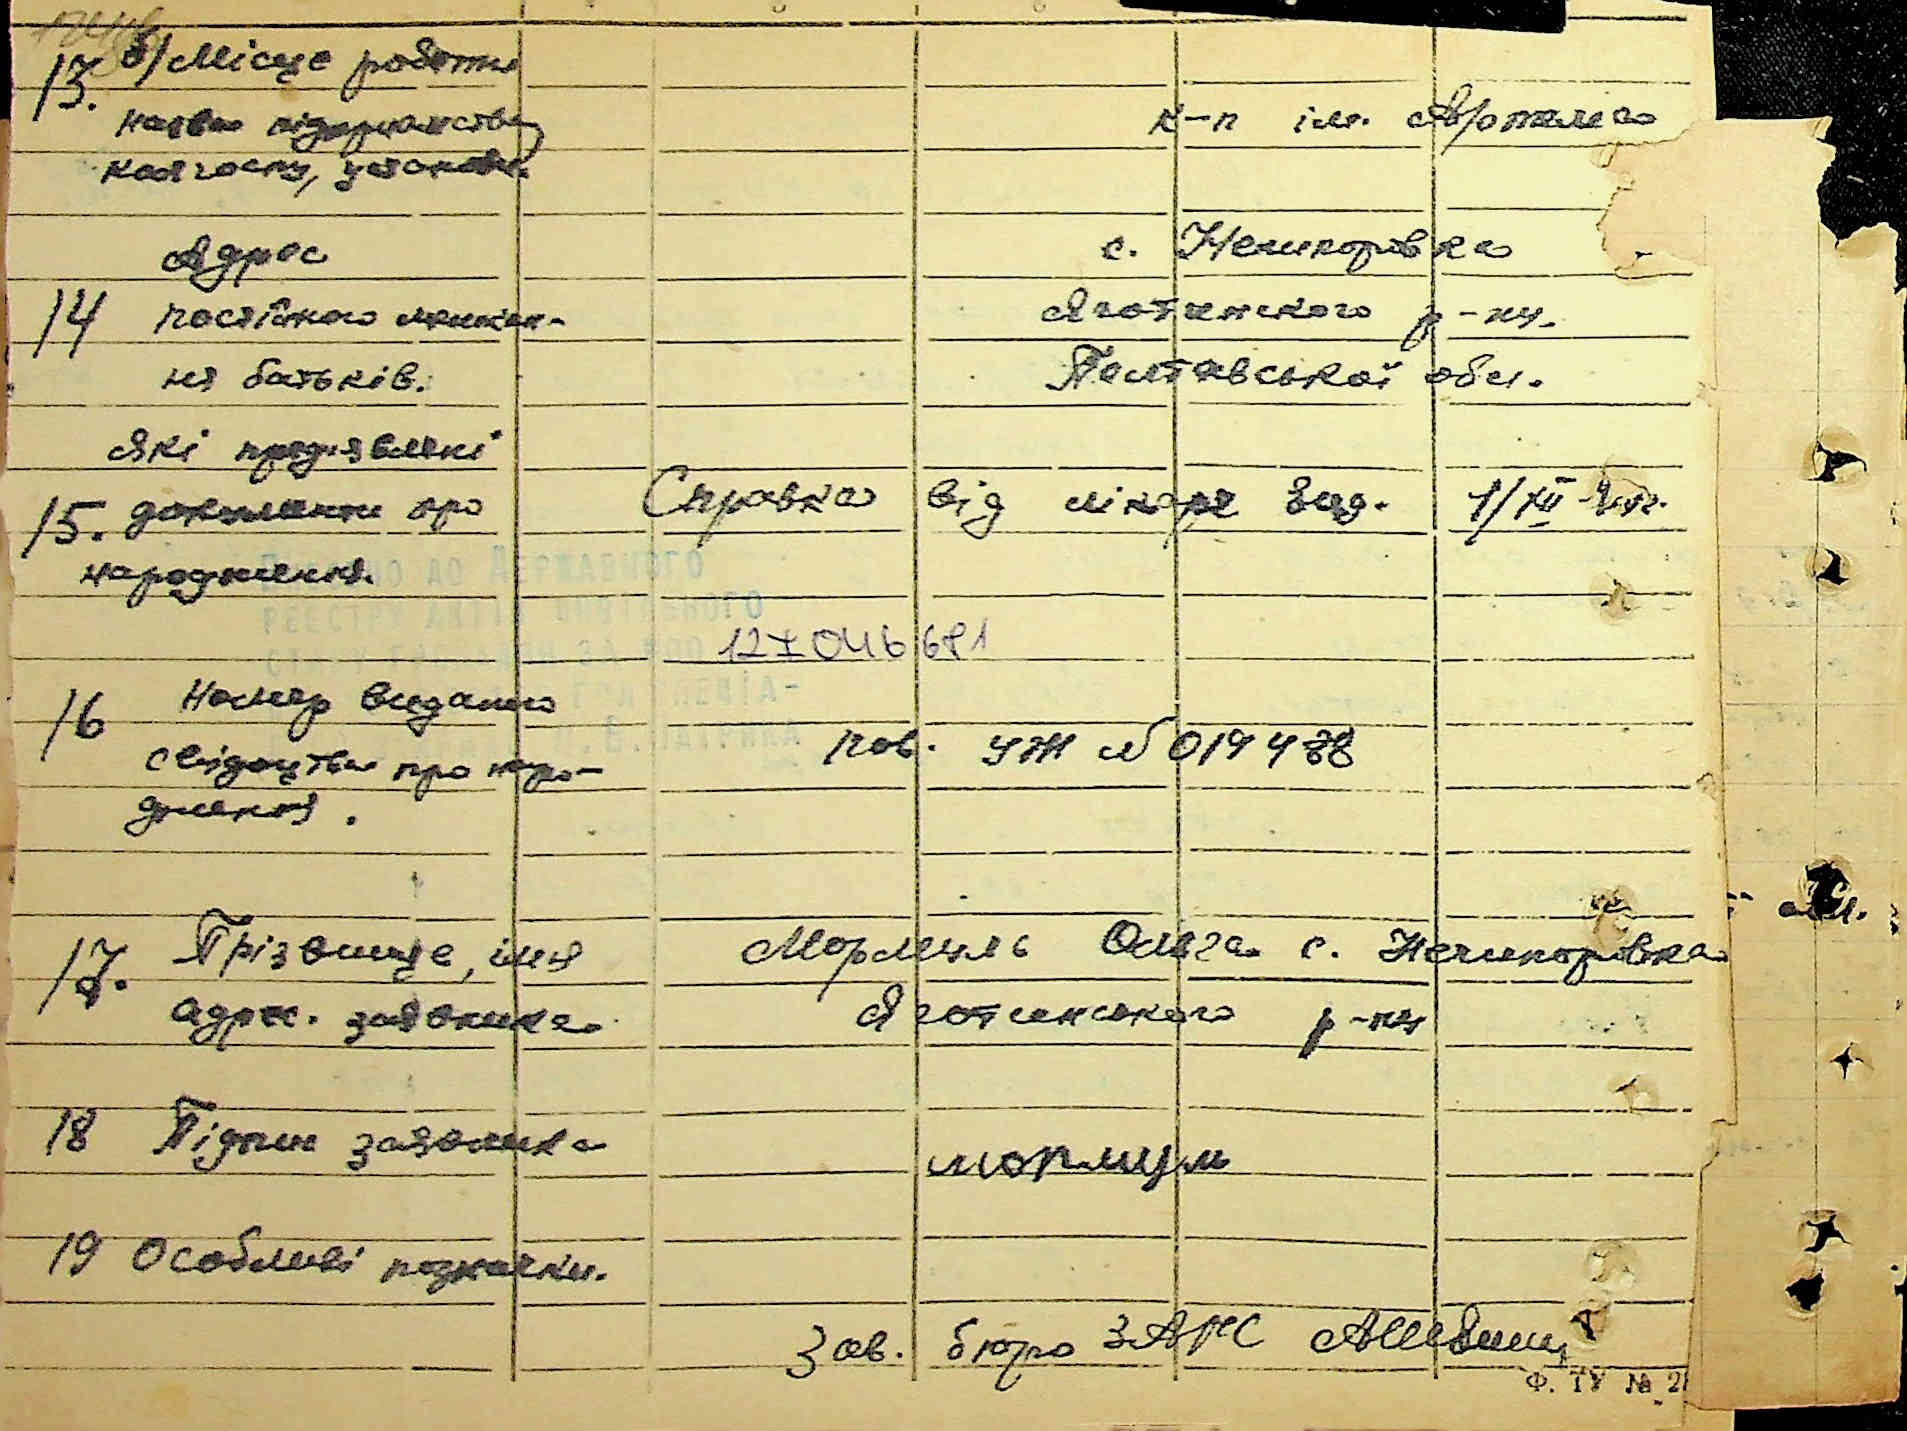 13. б/ Місце роботи
назва підприємства
колгоспу, установи.
к-п ім.
Адрес
с. Нечипорівка
14 постійного мешкан-
Яготинского р-ну.
ня батьків.
Полтавської обл.
Які предявлені
15. документи про
Справка від лікаря вид. 1/XII
народження.
Внесено до Державного
реєстру актів цивільного
стану громадян за №00
127046681
16 Номер виданого
свідоцтва про наро-
пов. УЖ №019488
дження.
17. Прізвище, імя
Мормуль Ольга с. Нечипоровка
адрес. заявника
Яготинського р-ну
18 Підпис заявника
мормул
19 Особливі позначки.
Зав. бюро ЗАГС
Ф. ТУ № 2